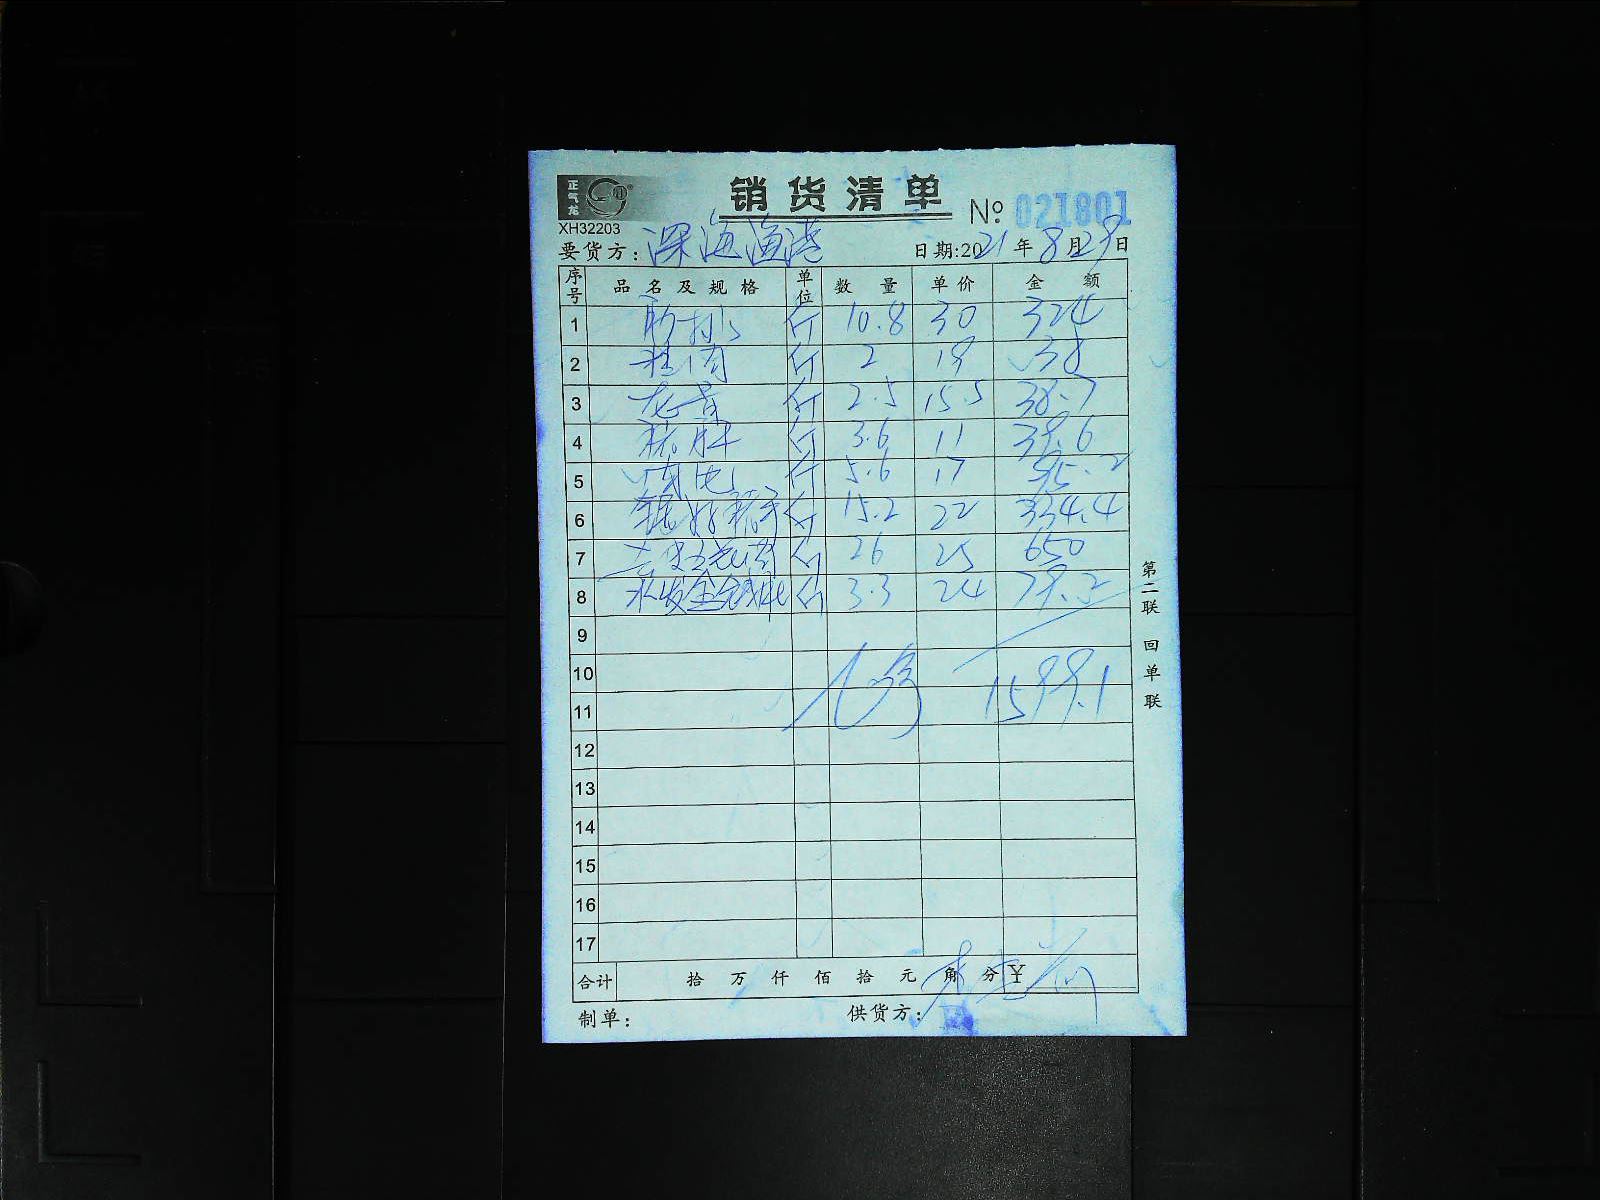 正气龙
销货清单
XH32203
№ 021801
要货方: 深海渔港 日期:2021年8月29日
序号 品名及规格 单位 数量 单价 金额
1 肋排 斤 10.8 30 324
2 斤 2 19 38
3 龙骨 斤 2.5 15.5 38.7
4 猪肝 斤 3.6 11 39.6
5 斤 5.6 17 95.2
6 斤 15.2 22 334.4
7 斤 26 25 650
8 水发金钱肚 斤 3.3 24 79.2
9
10
11 1599.1
12
13
14
15
16
17
合计 拾 万 仟 佰 拾 元 角 分 ¥
制单: 供货方:
第二联 回单联